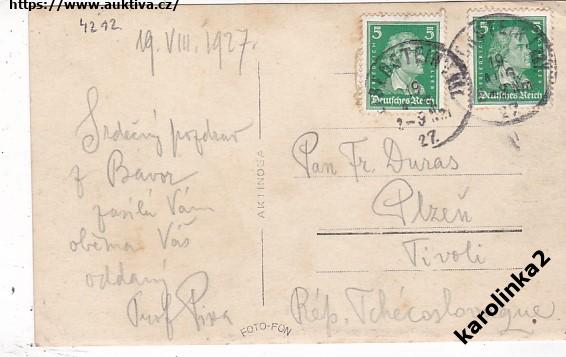 https://www.auktiva.cz/
4292
19. VIII. 1927.
Srdečný pozdrav
z Bavor
zasílá Vám
oběma Váš
oddaný
Prof Piva
AKTINOSA
FOTO-FON
5 5
Deutsches Reich
5
Deutsches Reich
19
2-3 Nm
27.
Pan Fr. Duras
Plzeň
Tivoli
Rép. Tchécoslovaque
karolinka2